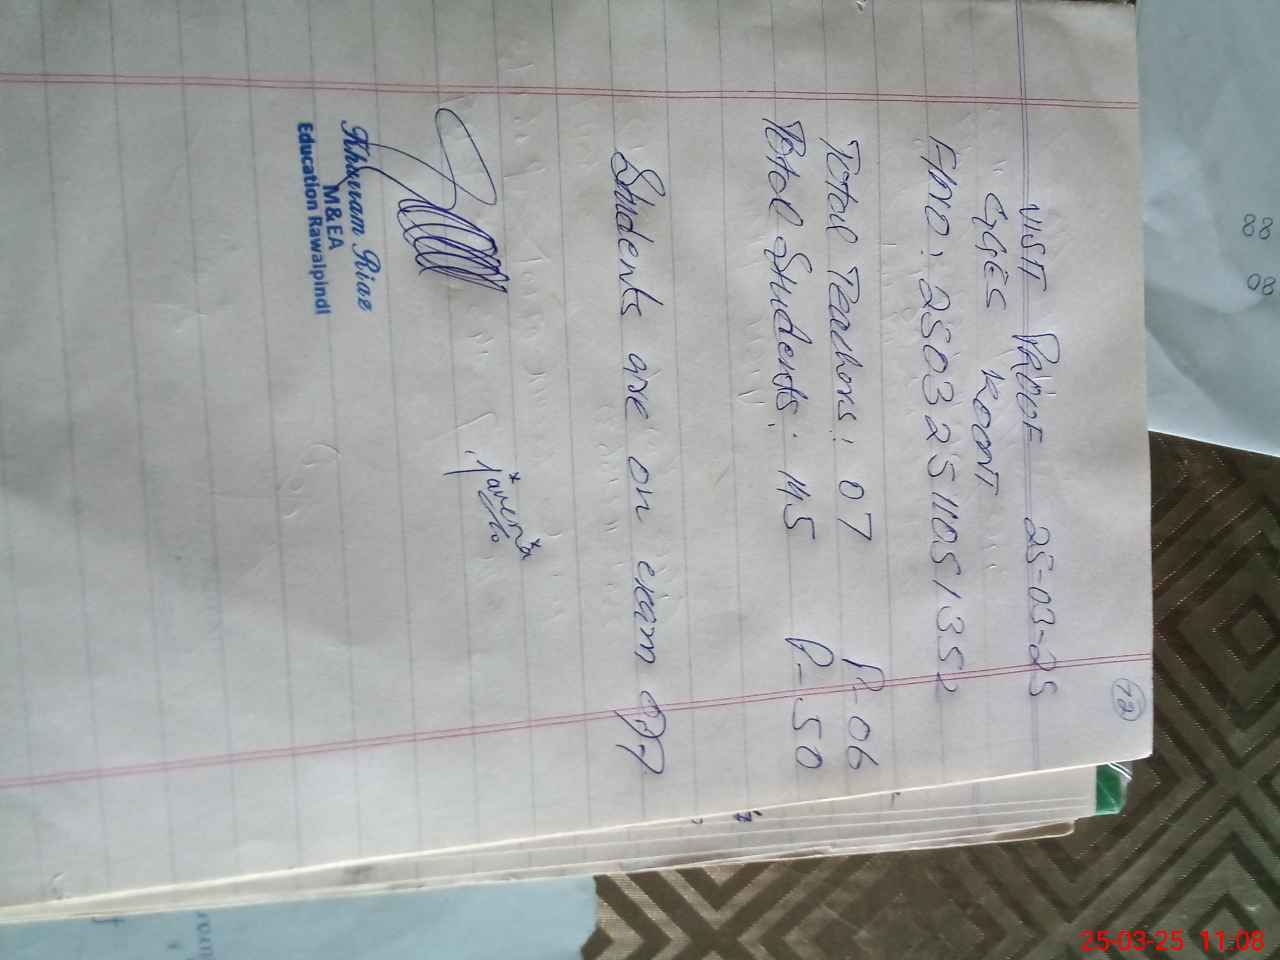 12
VIST PROOF 25-03-25
GGES KOONT
FMO: 25032511051352
Total Teachers: 07 P-06
Total Students: 145 P-50
Students are on exam
Khurram Riaz
M&EA
Education Rawalpindi
88
08
25-03-25 11:08